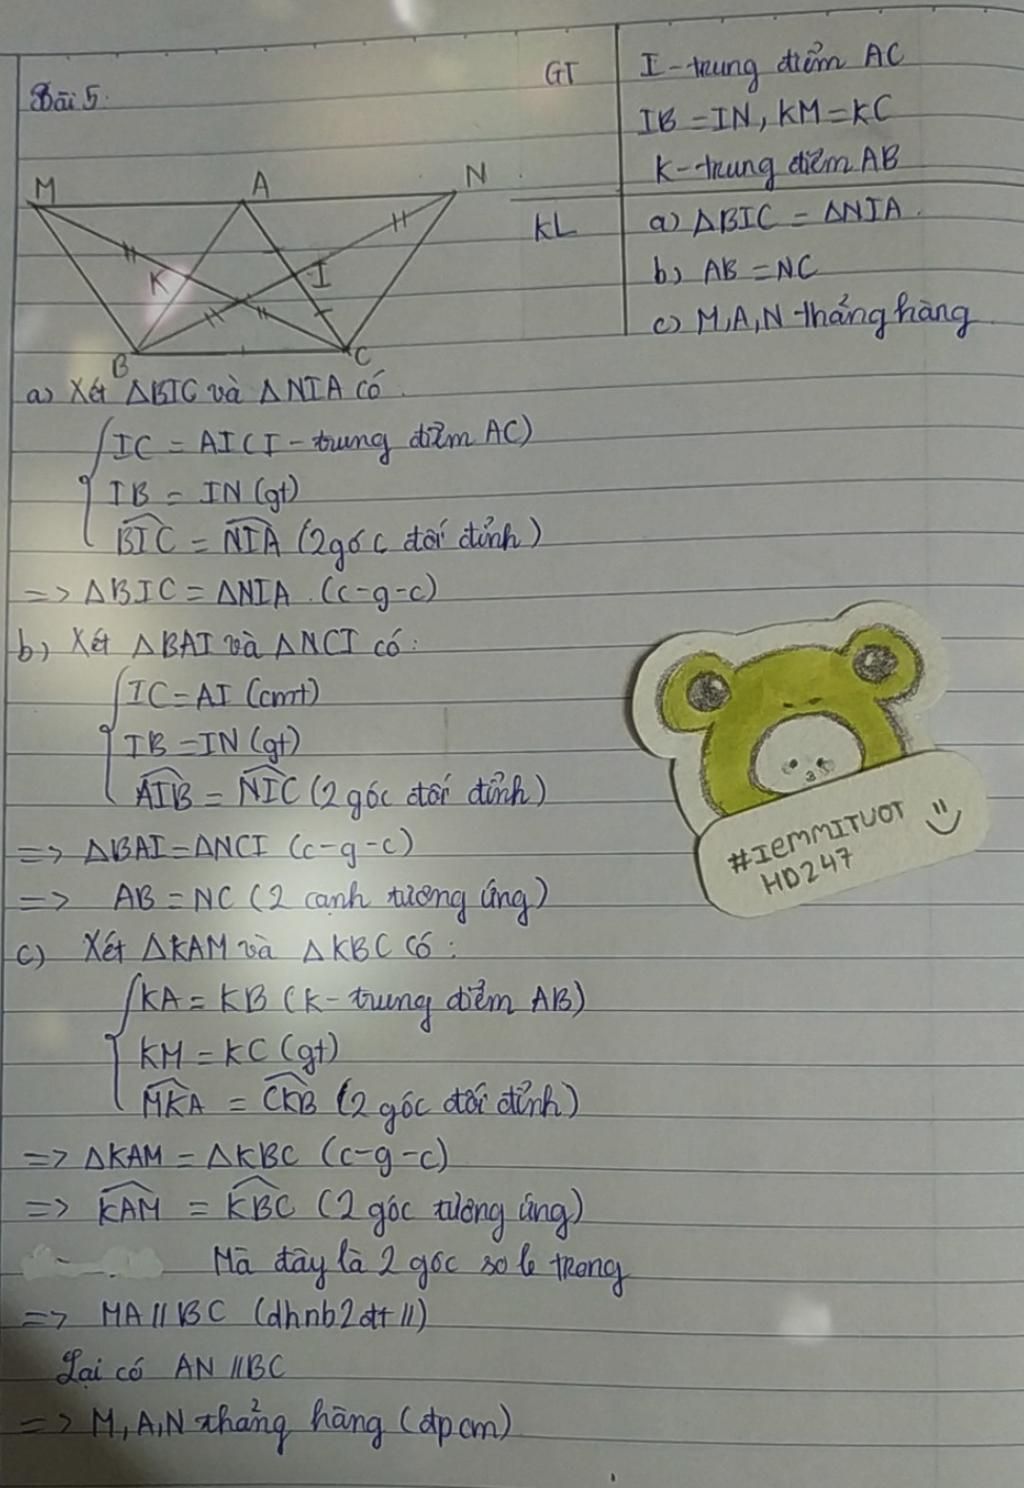 Bài 5.
GT
I-trung điểm AC
IB = IN, KM = KC
K-trung điểm AB
KL
a) ΔBIC = ΔNIA.
b) AB = NC
c) M,A,N thẳng hàng
M A N
K I
B C
a) Xét ΔBIC và ΔNIA có.
IC = AI (I - trung điểm AC)
IB = IN (gt)
BIC = NIA (2 góc đối đỉnh)
=> ΔBIC = ΔNIA. (c-g-c)
b) Xét ΔBAI và ΔNCI có:
IC = AI (cmt)
IB = IN (gt)
AIB = NIC (2 góc đối đỉnh)
=> ΔBAI = ΔNCI (c-g-c)
=> AB = NC (2 cạnh tương ứng)
c) Xét ΔKAM và ΔKBC có:
KA = KB (K - trung điểm AB)
KM = KC (gt)
MKA = CKB (2 góc đối đỉnh)
=> ΔKAM = ΔKBC (c-g-c)
=> KAM = KBC (2 góc tương ứng)
Mà đây là 2 góc so le trong
=> MA // BC (dhnb 2 đt //)
Lại có AN // BC
=> M,A,N thẳng hàng (đpcm)
#IEMMITUOT
HD247